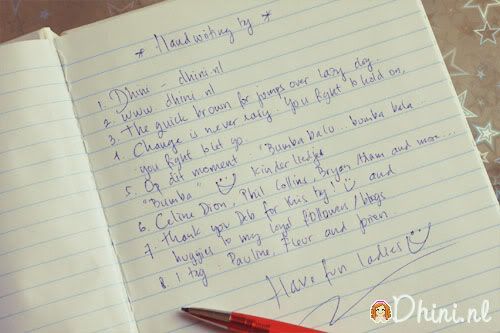 * Handwriting by *
1. Dhini - dhini.nl
2. www.dhini.nl
3. The quick brown fox jumps over lazy dog.
4. Change is never easy. You fight to hold on,
you fight to let go.
5. Op dit moment : "Bumba balu... bumba bala...
"Bumba" kinderliedjes
6. Celine Dion, Phil Collins, Bryan Adam and more...
7. Thank you Deb for this tag! and
huggies to my loyal followers/blogs
8. I tag : Pauline, Fleur and
Have fun ladies
Dhini.nl